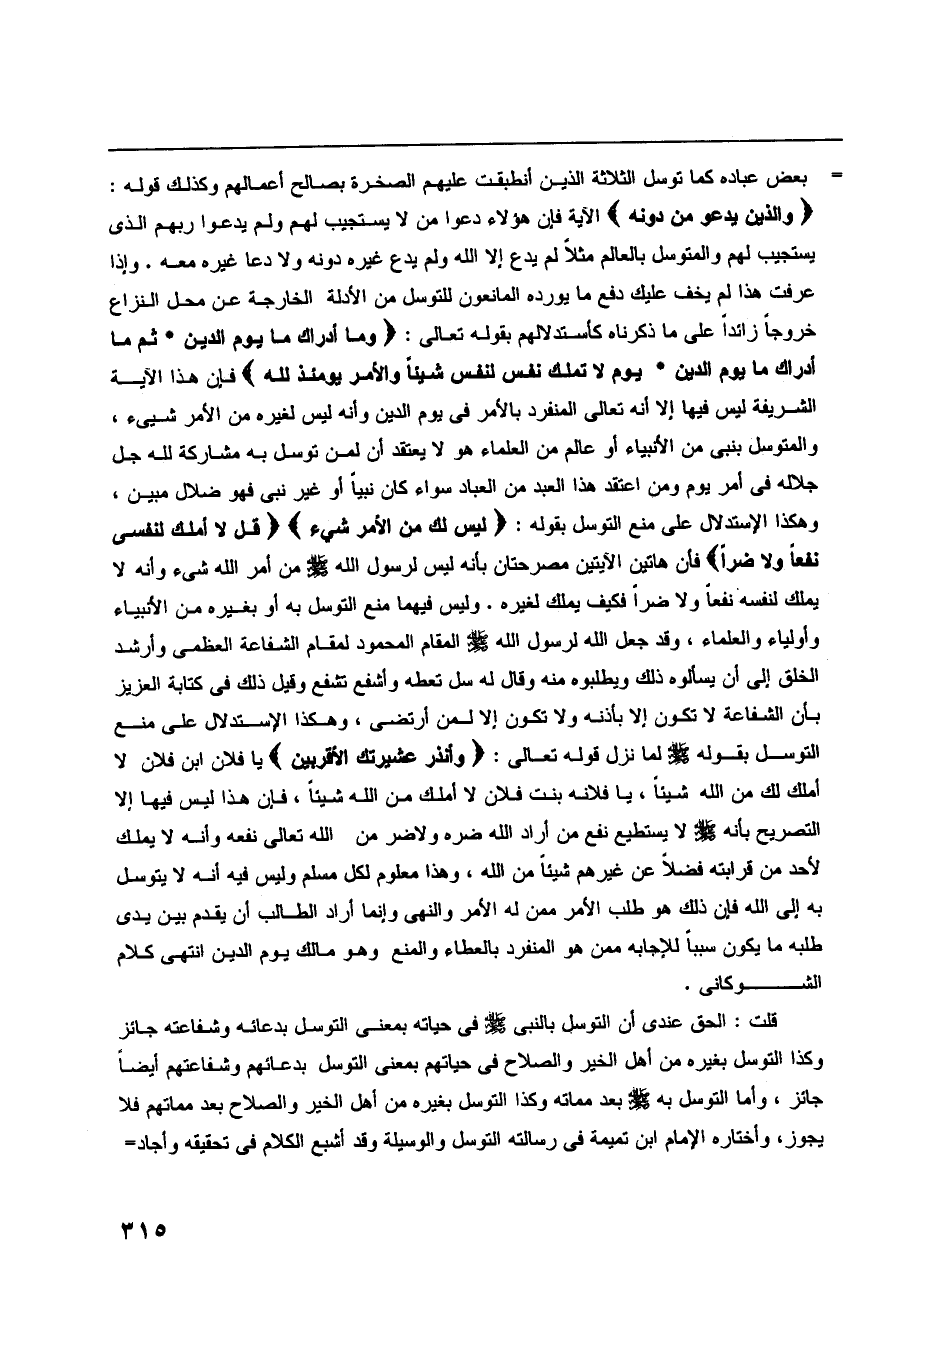 = بعض عباده كما توسل الثلاثة الذيـن أنطبقت عليهم الصخرة بصالح أعمالهم وكذلك قولـه :
﴿ والذين يدعو من دونه ﴾ الآية فإن هؤلاء دعوا من لا يستجيب لهم ولم يدعوا ربهم الذى
يستجيب لهم والمتوسل بالعالم مثلاً لم يدع إلا الله ولم يدع غيره دونه ولا دعا غيره معه . وإذا
عرفت هذا لم يخف عليك دفع ما يورده المانعون للتوسل من الأدلة الخارجة عن محل النزاع
خروجاً زائداً على ما ذكرناه كأستدلالهم بقوله تعالى : ﴿ وما أدراك ما يوم الدين * ثم ما
أدراك ما يوم الدين * يوم لا تملك نفس لنفس شيئاً والأمر يومئذ لله ﴾ فإن هذا الآيـة
الشريفة ليس فيها إلا أنه تعالى المنفرد بالأمر فى يوم الدين وأنه ليس لغيره من الأمر شيىء ،
والمتوسل بنبى من الأنبياء أو عالم من العلماء هو لا يعتقد أن لمن توسل به مشاركة لله جل
جلاله فى أمر يوم ومن اعتقد هذا العبد من العباد سواء كان نبياً أو غير نبى فهو ضلال مبين ،
وهكذا الإستدلال على منع التوسل بقوله : ﴿ ليس لك من الأمر شيء ﴾ ﴿ قل لا أملك لنفسى
نفعاً ولا ضراً﴾ فأن هاتين الآيتين مصرحتان بأنه ليس لرسول الله ﷺ من أمر الله شىء وأنه لا
يملك لنفسه نفعاً ولا ضراً فكيف يملك لغيره . وليس فيهما منع التوسل به أو بغيره من الأنبياء
وأولياء والعلماء ، وقد جعل الله لرسول الله ﷺ المقام المحمود لمقام الشفاعة العظمى وأرشد
الخلق إلى أن يسألوه ذلك ويطلبوه منه وقال له سل تعطه وأشفع تشفع وقيل ذلك فى كتابة العزيز
بأن الشفاعة لا تكون إلا بأذنه ولا تكون إلا لمن أرتضى ، وهكذا الإستدلال على منع
التوسل بقوله ﷺ لما نزل قوله تعالى : ﴿ وأنذر عشيرتك الأقربين ﴾ يا فلان ابن فلان لا
أملك لك من الله شيئاً ، يا فلانه بنت فلان لا أملك من الله شيئاً ، فإن هذا ليس فيها إلا
التصريح بأنه ﷺ لا يستطيع نفع من أراد الله ضره ولاضر من الله تعالى نفعه وأنه لا يملك
لأحد من قرابته فضلاً عن غيرهم شيئاً من الله ، وهذا معلوم لكل مسلم وليس فيه أنه لا يتوسل
به إلى الله فإن ذلك هو طلب الأمر ممن له الأمر والنهى وإنما أراد الطالب أن يقدم بين يدى
طلبه ما يكون سبباً للإجابه ممن هو المنفرد بالعطاء والمنع وهو مالك يوم الدين انتهى كلام
الشـــوكانى .
قلت : الحق عندى أن التوسل بالنبى ﷺ فى حياته بمعنى التوسل بدعائه وشفاعته جائز
وكذا التوسل بغيره من أهل الخير والصلاح فى حياتهم بمعنى التوسل بدعائهم وشفاعتهم أيضاً
جائز ، وأما التوسل به ﷺ بعد مماته وكذا التوسل بغيره من أهل الخير والصلاح بعد مماتهم فلا
يجوز، وأختاره الإمام ابن تميمة فى رسالته التوسل والوسيلة وقد أشبع الكلام فى تحقيقه وأجاد=
٣١٥